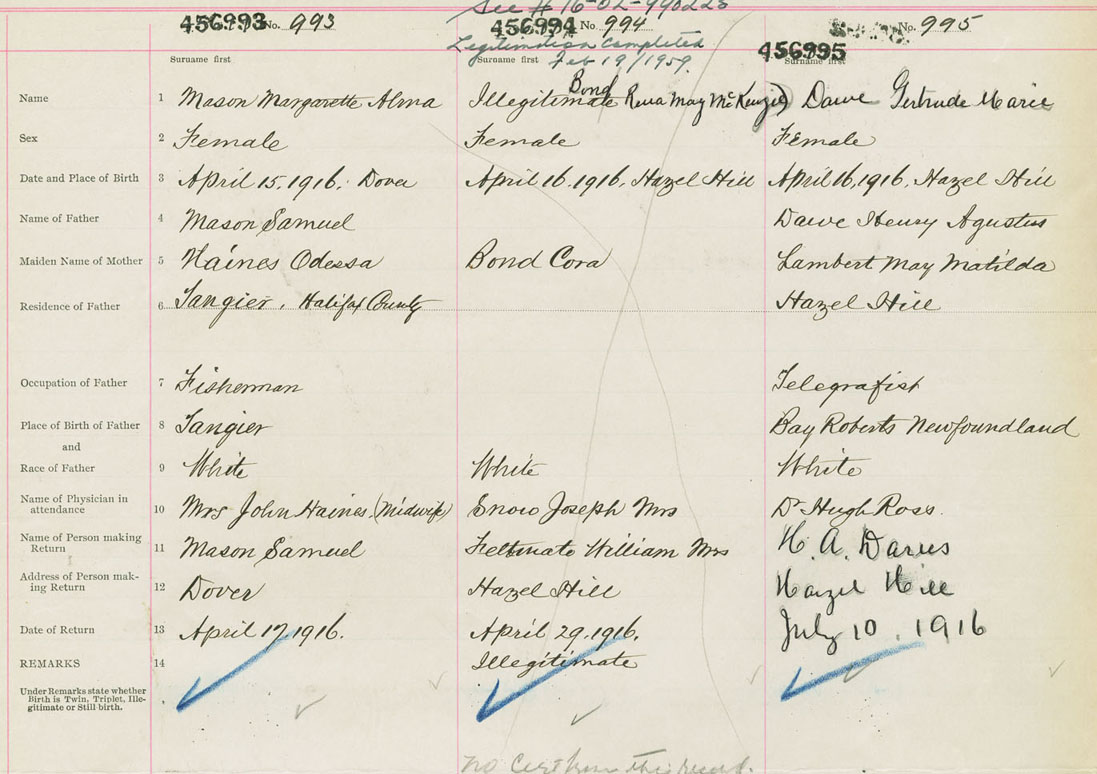 See # 16-02-990223
456993 No. 993
456994 No. 994
No. 995
456995
Legitimation Completed
Feb 19/1959.
Surname first
Surname first
Surname first
Name 1 Mason Margarette Alma
Illegitimate Bond Rena May McKenzie)
Dawe Gertrude Marie
Sex 2 Female
Female
Female
Date and Place of Birth 3 April 15, 1916. Dover
April 16, 1916, Hazel Hill
April 16, 1916, Hazel Hill
Name of Father 4 Mason Samuel
Dawe Henry Agustus
Maiden Name of Mother 5 Haines Odessa
Bond Cora
Lambert May Matilda
Residence of Father 6 Tangier, Halifax County
Hazel Hill
Occupation of Father 7 Fisherman
Telegrafist
Place of Birth of Father 8 Tangier
Bay Roberts Newfoundland
and
Race of Father 9 White
White
White
Name of Physician in
attendance 10 Mrs John Haines (Midwife)
Snow Joseph Mrs
Dr Hugh Ross.
Name of Person making
Return 11 Mason Samuel
William Mrs
H. A.
Address of Person mak-
ing Return 12 Dover
Hazel Hill
Hazel Hill
Date of Return 13 April 17, 1916.
April 29, 1916.
July 10, 1916
REMARKS 14
Illegitimate
Under Remarks state whether
Birth is Twin, Triplet, Ille-
gitimate or Still birth.
no Cert from this record.